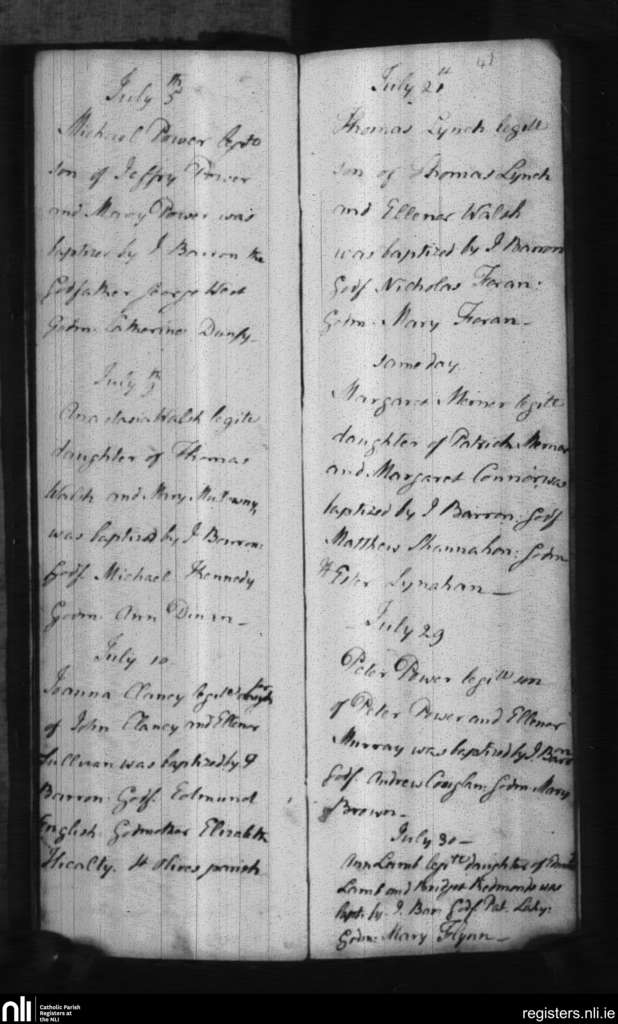 July 5th
Michael Power legte
son of Jeffry Power
and Mary Power was
baptized by J Barron the
Godfather George West
Godm: Catherine Dunfy-
July 9th
Anastasia Walsh legite
daughter of Thomas
Walsh and Mary
was baptized by J Barron:
Godf Michael Kennedy
Godm: Ann Dunn-
July 10
Joanna Clancy legite daughter
of John Clancy and Ellener
Sullivan was baptized by J
Barron: Godf: Edmund
English Godmother Elizabeth
Healty. St Olives parish
41
July 21st
Thomas Lynch legitte
son of Thomas Lynch
and Ellener Walsh
was baptized by J Barron
Godf Nicholas Foran:
Godm: Mary Foran-
same day
Margaret Merner legitte
daughter of Patrick Merner
and Margaret Connor was
baptized by J Barron: Godf
Matthew Shannahan: Godm
Ester Lynahan-
July 29
Peter Power legitte son
of Peter Power and Ellener
Murray was baptized by J Barron
Godf Andrew Couglan: Godm: Mary
Brown-
July 30-
Ann Lamb legitte daughter of
Lamb and Bridget Redmonds was
bapt: by J. Bar: Godf Pat. Lahy:
Godm: Mary Flynn-
nli
Catholic Parish
Registers at
the NLI
registers.nli.ie